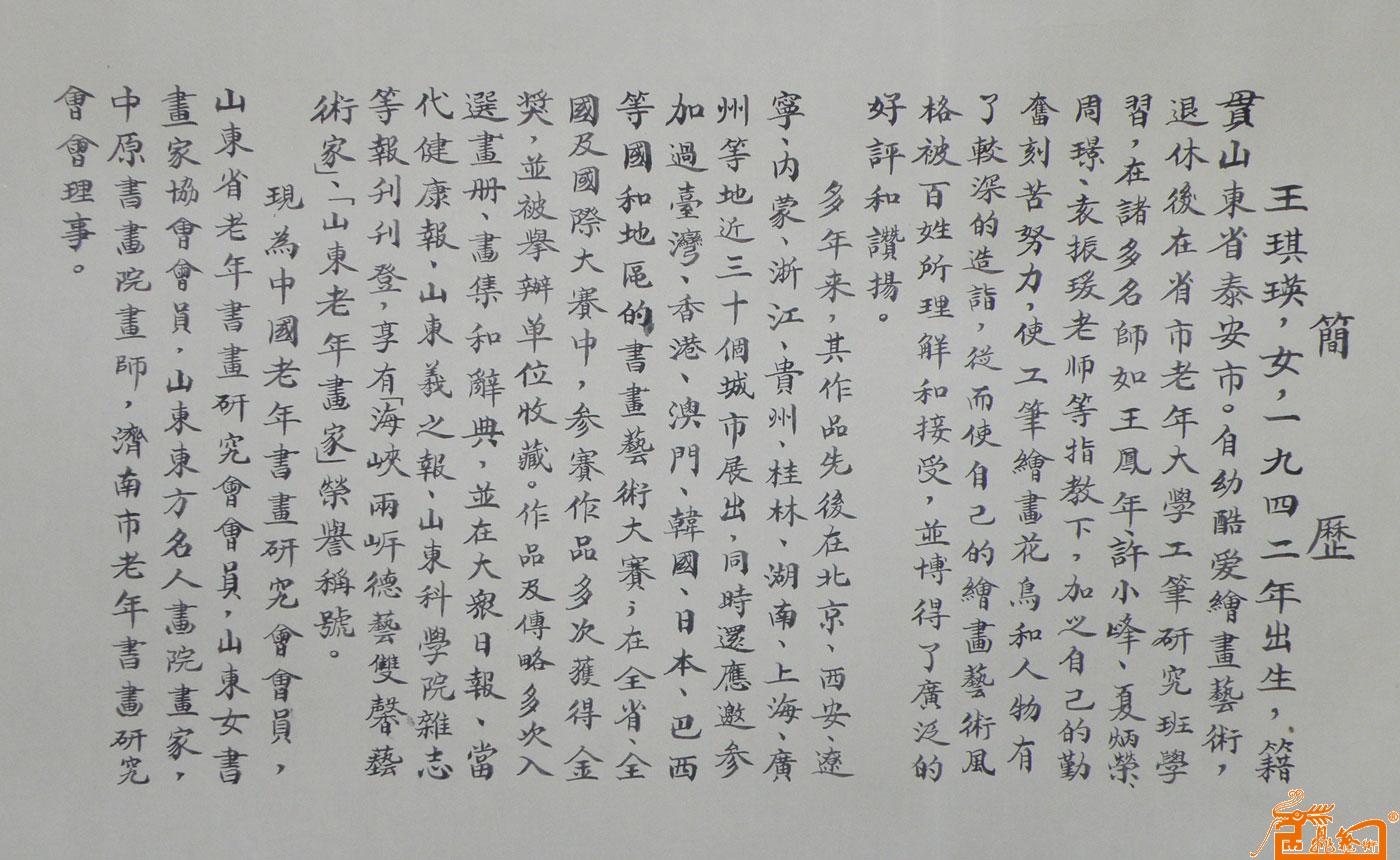 簡歷
王琪瑛，女，一九四二年出生，籍
貫山東省泰安市。自幼酷爱繪畫藝術，
退休後在省市老年大學工筆研究班學
習，在諸多名師如王鳳年、許小峰、夏炳榮、
周璟、袁振瑗老师等指教下，加之自己的勤
奮刻苦努力，使工筆繪畫花鳥和人物有
了較深的造詣，從而使自己的繪畫藝術風
格被百姓所理解和接受，並博得了廣泛的
好評和讚揚。
多年来，其作品先後在北京、西安、遼
寧、内蒙、浙江、貴州、桂林、湖南、上海、廣
州等地近三十個城市展出，同時還應邀參
加過臺灣、香港、澳門、韓國、日本、巴西
等國和地區的書畫藝術大賽；在全省、全
國及國際大賽中，参賽作品多次獲得金
獎，並被舉辦单位收藏。作品及傳略多次入
選畫册、畫集和辭典，並在大衆日報、當
代健康報、山東義之報、山東科學院雜志
等報刊刊登，享有「海峽兩岸德藝雙馨藝
術家」、「山東老年畫家」榮譽稱號。
現為中國老年書畫研究會會員，
山東省老年書畫研究會會員，山東女書
畫家協會會員，山東東方名人畫院畫家，
中原書畫院畫師，濟南市老年書畫研究
會會理事。